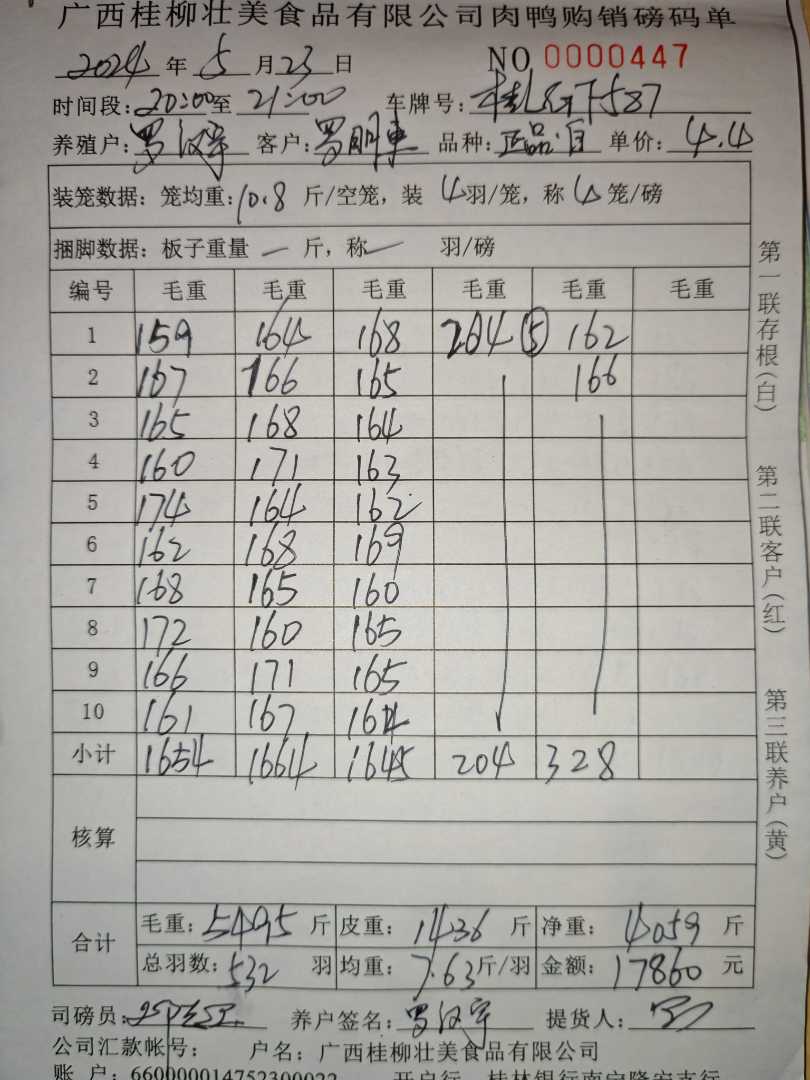 广西桂柳壮美食品有限公司肉鸭购销磅码单
2024 年 5 月 23 日 NO 0000447
时间段: 20:00 至 21:00 车牌号: 587
养殖户: 罗汉宇 客户: 罗明东 品种: 正品·白 单价: 4.4
装笼数据: 笼均重: 10.8 斤/空笼, 装 4 羽/笼, 称 4 笼/磅
捆脚数据: 板子重量 一 斤, 称 一 羽/磅
编号 毛重 毛重 毛重 毛重 毛重 毛重
1 159 164 168 204 ⑤ 162
2 167 166 165 166
3 165 168 164
4 160 171 163
5 174 164 162
6 162 168 169
7 168 165 160
8 172 160 165
9 166 171 165
10 161 167 164
小计 1654 1664 1645 204 328
核算
合计 毛重: 5495 斤 皮重: 1436 斤 净重: 4059 斤
总羽数: 532 羽 均重: 7.63 斤/羽 金额: 17860 元
司磅员: 养户签名: 罗汉宇 提货人:
公司汇款帐号: 户名: 广西桂柳壮美食品有限公司
账 户: 660000014752300022 开户行 桂林银行南宁隆安支行
第一联存根(白)
第二联客户(红)
第三联养户(黄)